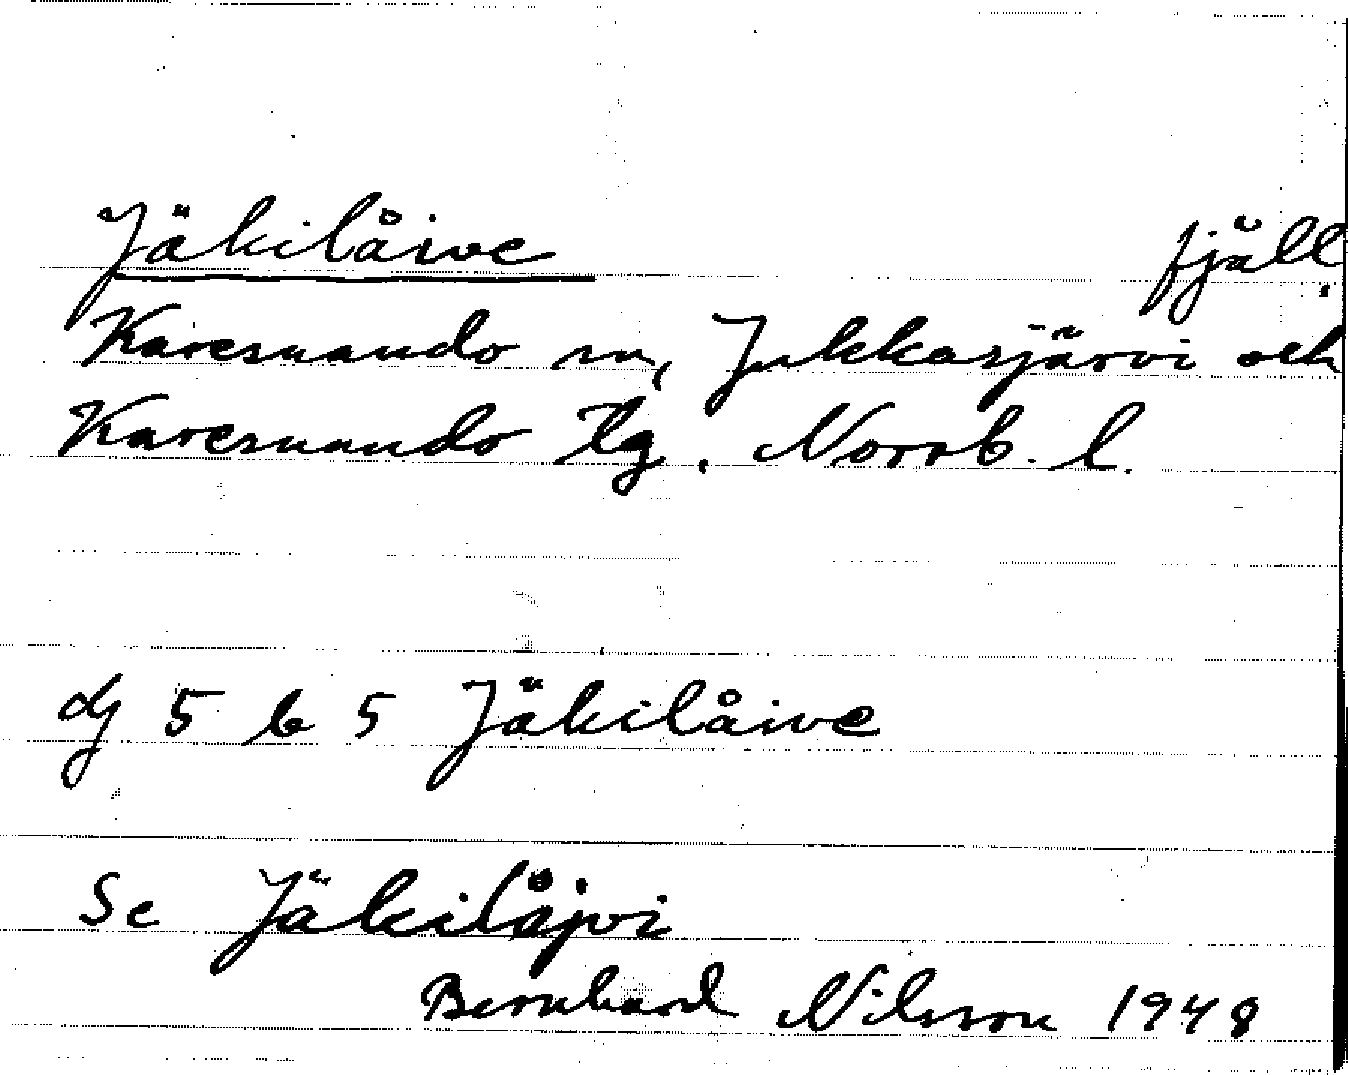 Jäkilåive fjäll,
Karesuando sn, Jukkasjärvi och
Karesuando tlg. Norrb. l.
dj 5 b 5 Jäkilåive
Se Jäkilåjvi
Bernhard Nilsson 1948